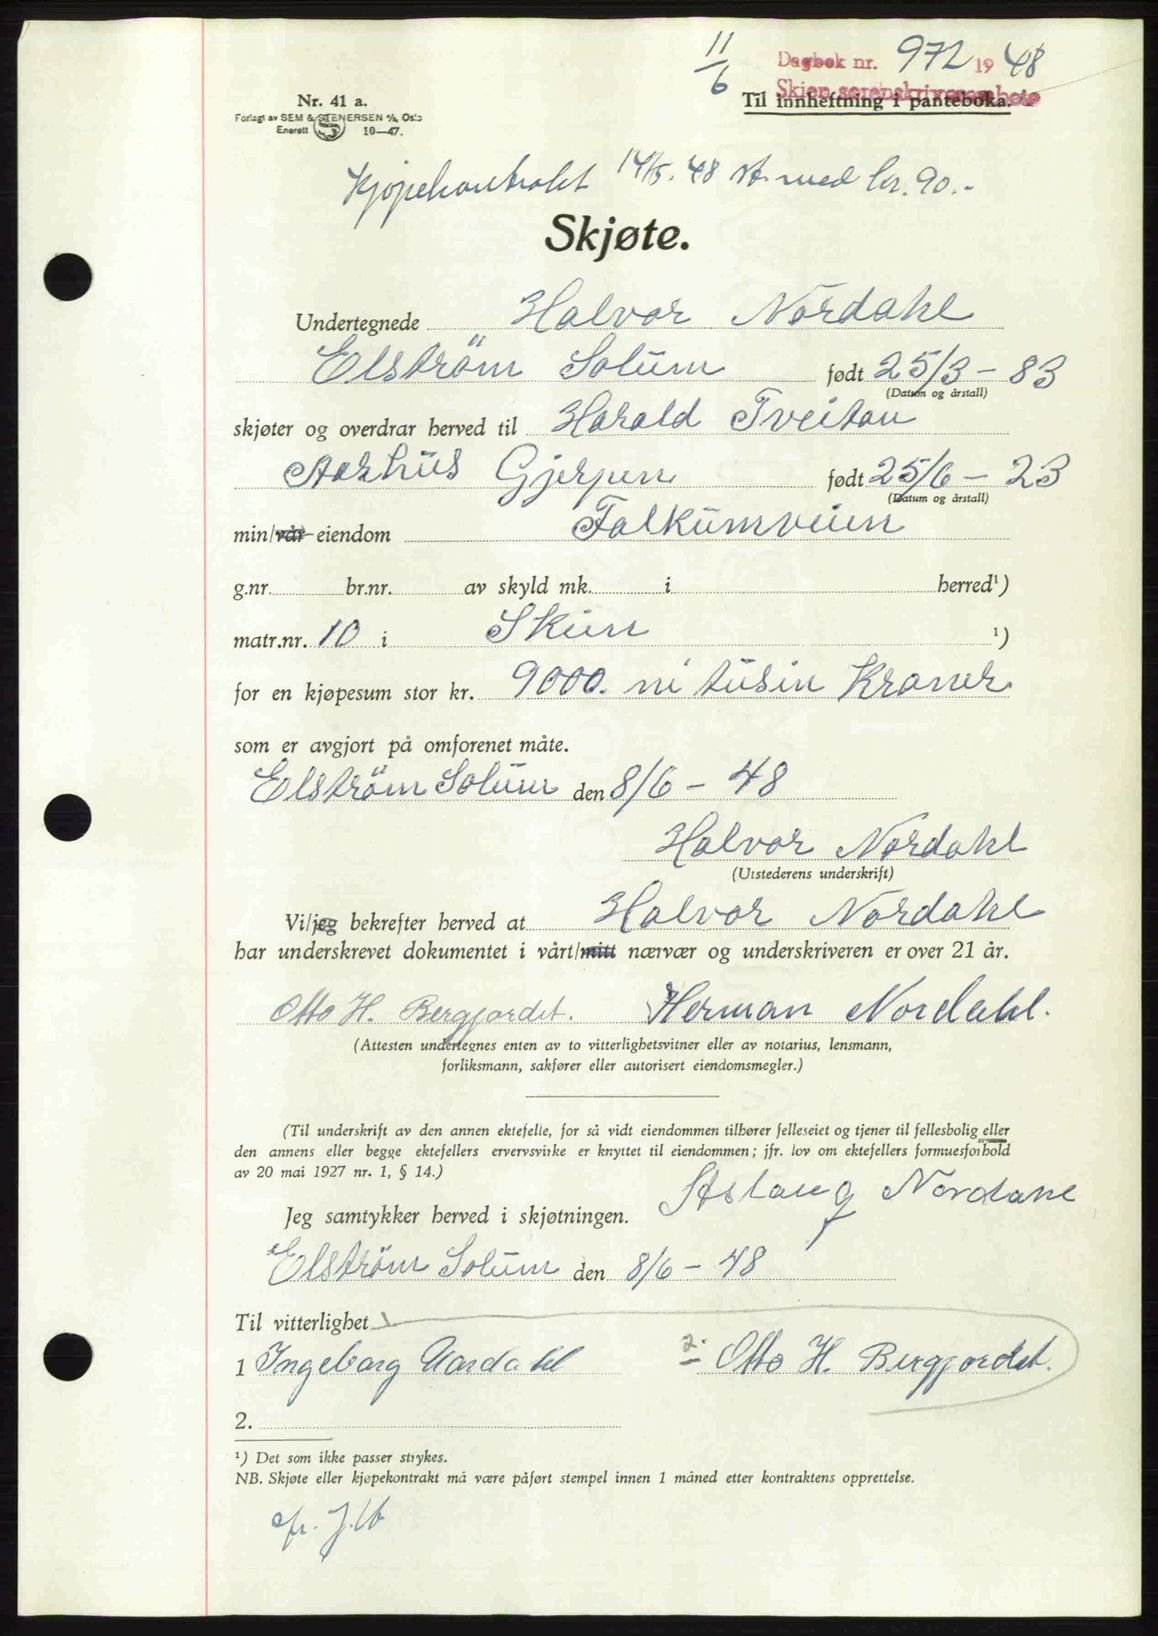 11/6 Dagbok nr. 972 1948
Skien sorenskriverembete
Nr. 41 a. Til innheftning i panteboka.
Forlagt av SEM & STENERSEN A/S, Oslo
Enerett S 10—47.
Kjøpekontrakt 14/5-48 st. med kr. 90.-
Skjøte.
Undertegnede Halvor Nordahl
Elström Solum født 25/3 - 83
(Datum og årstall)
skjøter og overdrar herved til Harald Tveitan
Aarhus Gjerpen født 25/6 - 23
(Datum og årstall)
min/vår eiendom Falkumveien
g.nr. br.nr. av skyld mk. i herred¹)
matr.nr. 10 i Skien ¹)
for en kjøpesum stor kr. 9000. ni tusin Kroner
som er avgjort på omforenet måte.
Elström Solum den 8/6 - 48
Halvor Nordahl
(Utstederens underskrift)
Vi/jeg bekrefter herved at Halvor Nordahl
har underskrevet dokumentet i vårt/mitt nærvær og underskriveren er over 21 år.
Otto H. Bergjordet. Herman Nordahl.
(Attesten undertegnes enten av to vitterlighetsvitner eller av notarius, lensmann,
forliksmann, sakfører eller autorisert eiendomsmegler.)
(Til underskrift av den annen ektefelle, for så vidt eiendommen tilhører felleseiet og tjener til fellesbolig eller
den annens eller begge ektefellers ervervsvirke er knyttet til eiendommen; jfr. lov om ektefellers formuesforhold
av 20 mai 1927 nr. 1, § 14.)
Aslaug Nordahl
Jeg samtykker herved i skjøtningen.
Elström Solum den 8/6 - 48
Til vitterlighet
1 Ingeborg Aardahl 2. Otto H. Bergjordet.
2.
¹) Det som ikke passer strykes.
NB. Skjøte eller kjøpekontrakt må være påført stempel innen 1 måned etter kontraktens opprettelse.